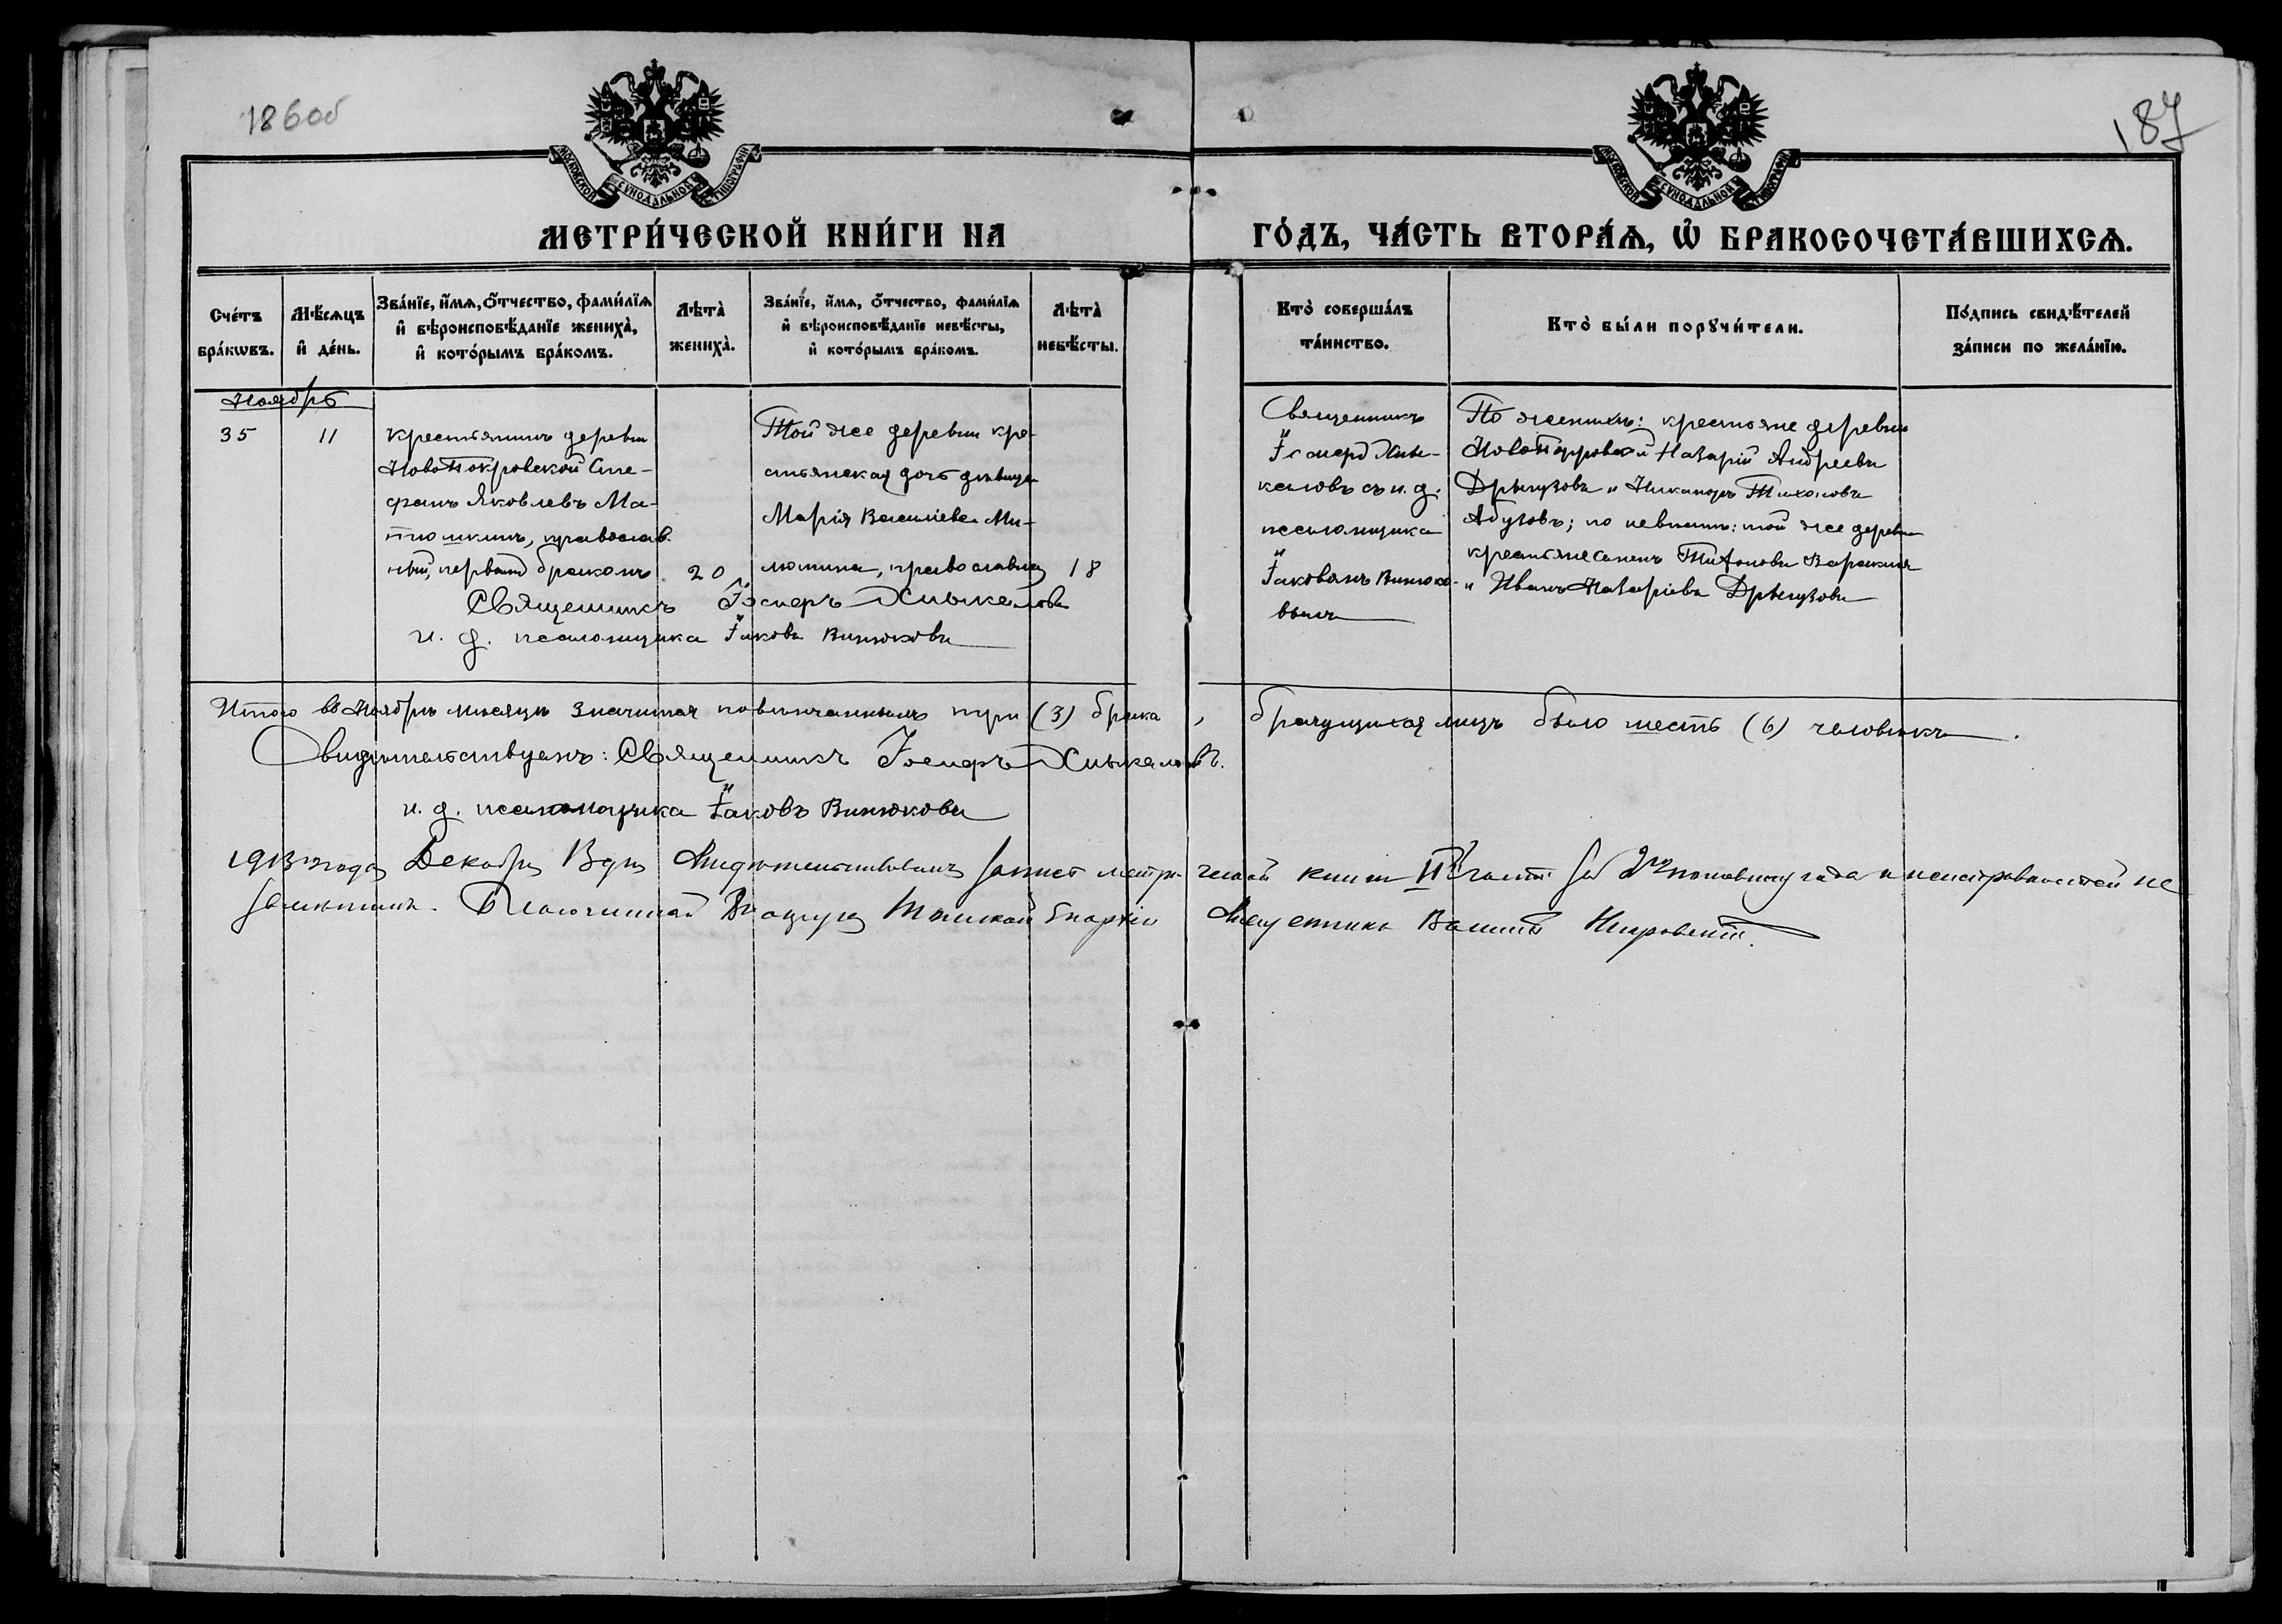 186об
187
МОСКОВСКОЙ СѴНОДАЛЬНОЙ ТИПОГРАФІИ
МОСКОВСКОЙ СѴНОДАЛЬНОЙ ТИПОГРАФІИ
МЕТРИ́ЧЕСКОЙ КНИ́ГИ НА
ГО́ДЪ, ЧА́СТЬ ВТОРА́Ѧ, Ѽ БРАКОСОЧЕТА́ВШИХСѦ.
Сче́тъ
бра́кѡвъ.
Мѣ́сѧцъ
и҆ де́нь.
Зва́нїе, и҆́мѧ, ѻ҆́тчество, фами́лїѧ
и҆ вѣроисповѣ́данїе жениха̀,
и҆ кото́рымъ бра́комъ.
Лѣ́та̀
жениха̀.
Зва́нїе, и҆́мѧ, ѻ҆́тчество, фами́лїѧ
и҆ вѣроисповѣ́данїе невѣ́сты,
и҆ кото́рымъ бра́комъ.
Лѣ́та̀
невѣ́сты.
Кто̀ соверша́лъ
та́инство.
Кто̀ бы́ли порꙋчи́тели.
По́дпись свидѣ́телей
за́писи по жела́нїю.
Ноябрь
35
11
крестьянинъ деревни
НовоПокровской Сте-
фанъ Яковлевъ Ма-
тюшкинъ, православ-
ный, первымъ бракомъ
20
Той же деревни кре-
стьянская дочь дѣвица
Марія Василіева Ми-
лютина, православная
18
Священникъ
Іосифъ Хмы-
каловъ съ и. д.
псаломщика
Іаковомъ Винюко-
вымъ
По женихѣ: крестьяне деревни
НовоПокровской Назарій Андреевъ
Дрыгузовъ и Никаноръ Тихоновъ
Абузовъ; по невѣстѣ: той же деревни
крестьяне Титовъ
и Иванъ Назаріевъ Дрыгузовъ
Священникъ Іосифъ Хмыкаловъ
и. д. псаломщика Іаковъ Винюковъ
Итого въ Ноябрѣ мѣсяцѣ значится повѣнчанныхъ три (3) брака, брачущихся лицъ было шесть (6) человѣкъ.
Свидѣтельствуемъ: Священникъ Іосифъ Хмыкаловъ.
и. д. псаломщика Іаковъ Винюковъ
1913 года Декабря дня свидѣтельствовалъ запись метрической книги II части за 2ю половину года и неисправностей не
замѣтилъ. Благочинный округа Томской Епархіи Священникъ